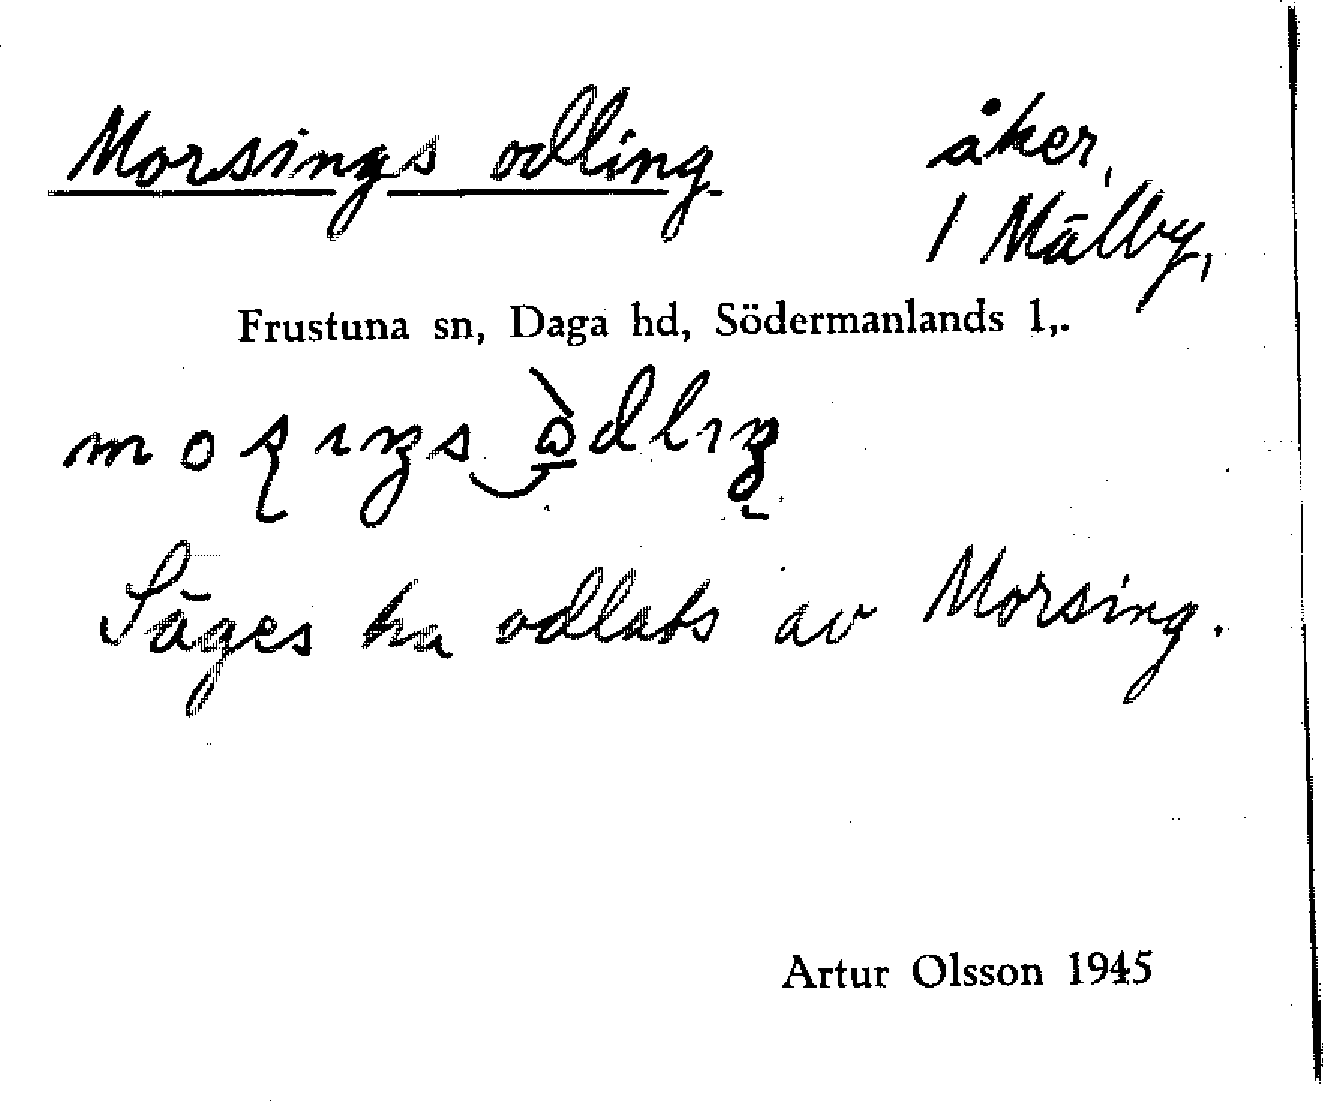 Morsings odling
åker,
1 Mälby,
Frustuna sn, Daga hd, Södermanlands l,.
Säges ha odlats av Morsing.
Artur Olsson 1945